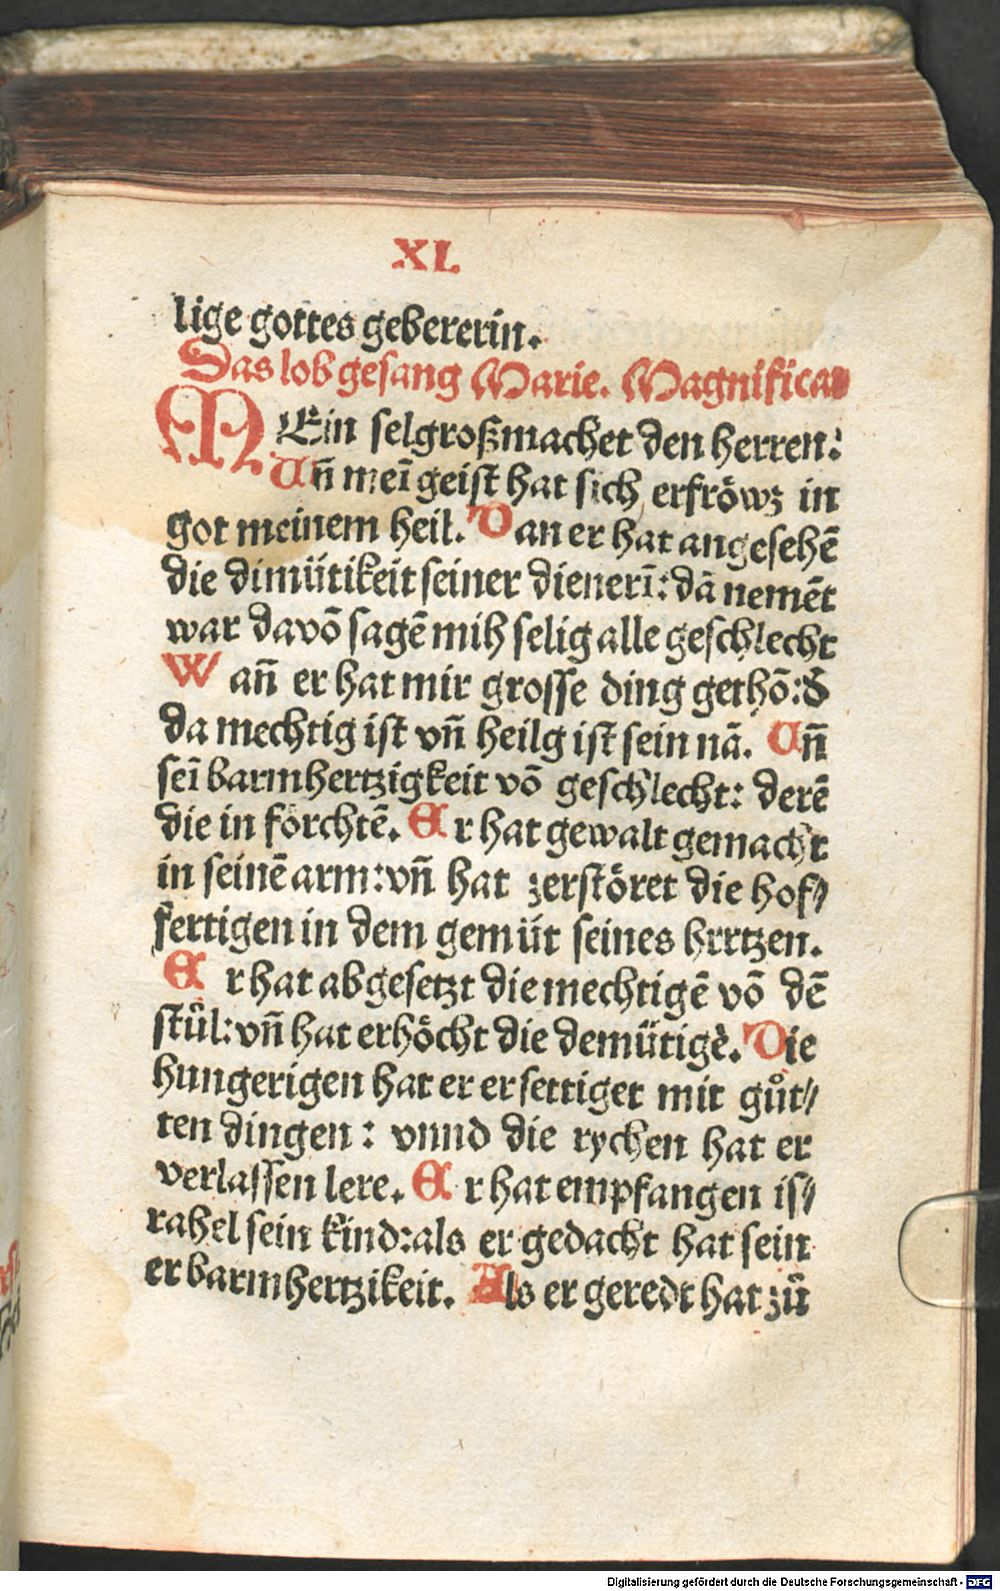 XL
lige gottes gebererin.
Das lob gesang Marie. Magnifica
MEin selgroßmachet den herren:
Un̄ meī geist hat sich erfröwꝫ in
got meinem heil. Dan er hat angesehē
die dimütikeit seiner dienerī: dā nemēt
war davō sagē mih selig alle geschlecht
Wan̄ er hat mir grosse ding gethō: d̄
da mechtig ist vn̄ heilg ist sein nā. Un̄
seī barmhertzigkeit vō geschlecht: derē
die in förchtē. Er hat gewalt gemacht
in seinē arm: vn̄ hat zerstöret die hof⸗
fertigen in dem gemüt seines hrrtzen.
Er hat abgesetzt die mechtigē vō dē
stůl: vn̄ hat erhöcht die demütigē. Die
hungerigen hat er ersettiget mit gůt⸗
ten dingen: vnnd die rychen hat er
verlassen lere. Er hat empfangen is⸗
rahel sein kind: als er gedacht hat sein
erbarmhertzikeit. Als er geredt hat zů
Digitalisierung gefördert durch die Deutsche Forschungsgemeinschaft - DFG